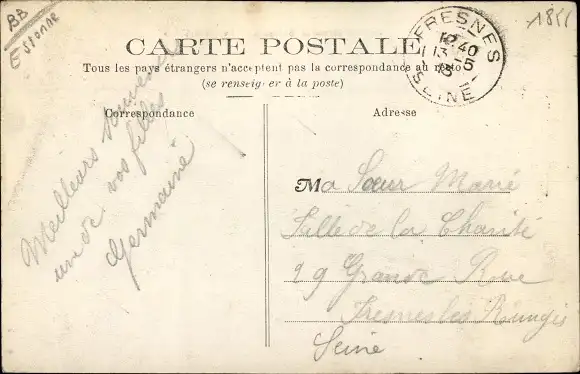 BB
Essonne
1855
CARTE POSTALE
Tous les pays étrangers n'acceptent pas la correspondance au recto
(se renseigner à la poste)
FRESNES
12*40
13-5
SEINE
Correspondance
Adresse
Meilleurs Souvenirs
une de vos filles
Germaine
Ma Sœur Marie
Fille de la Charité
29 Grande Rue
Fresnes les Rungis
Seine